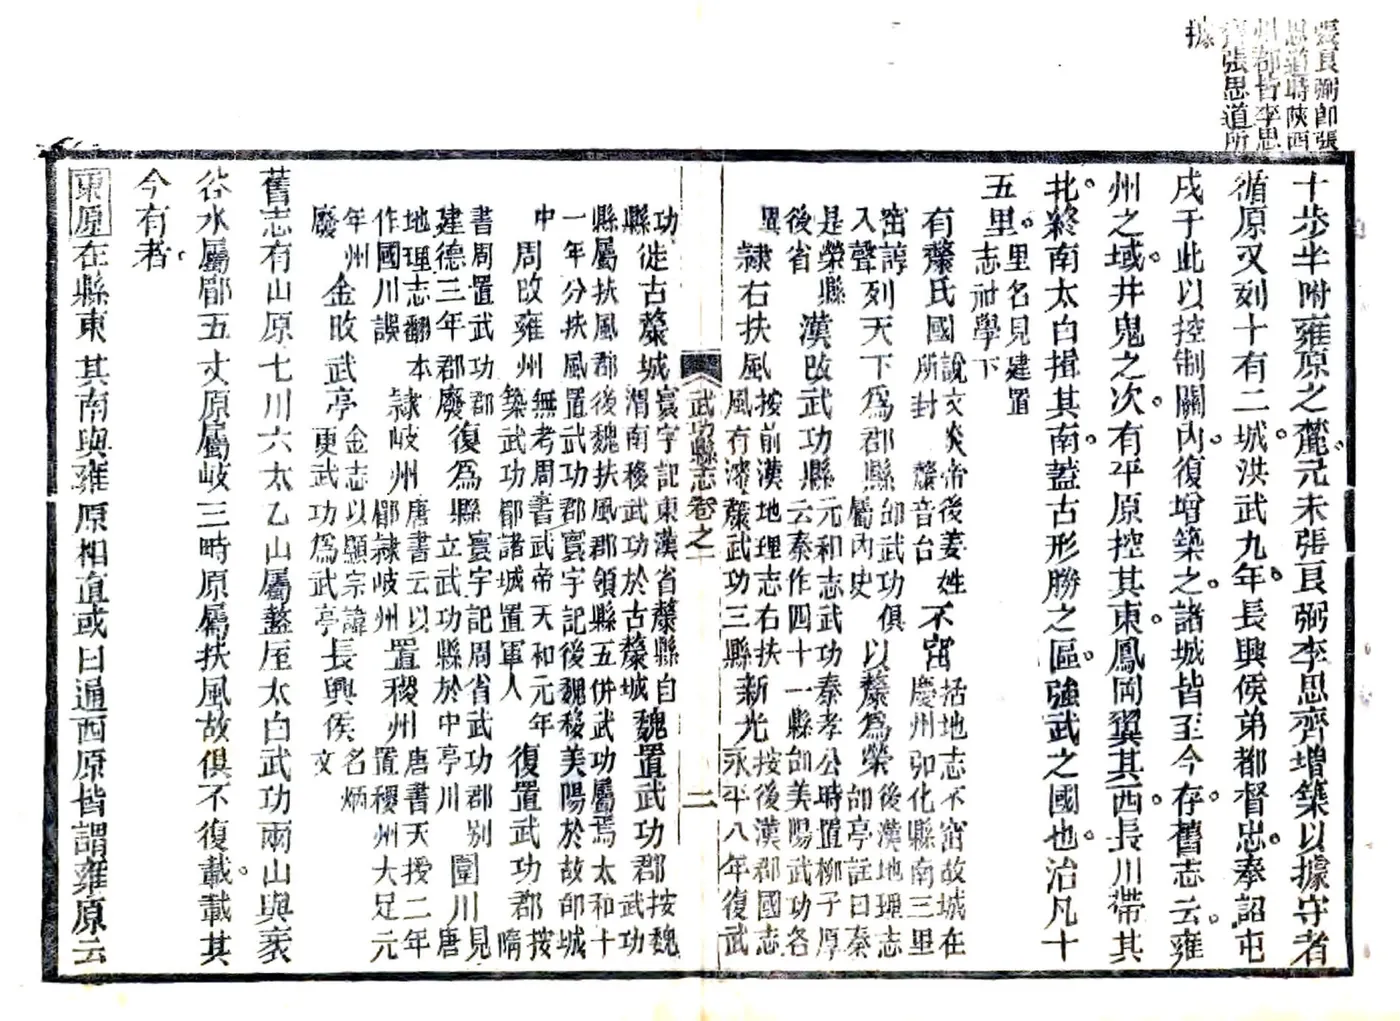 張良弼卽張
思道時陝西
州郡皆李思
齊張思道所
據
十步半附雍原之麓元末張良弼李思齊增築以據守者
循原又列十有二城洪武九年長興侯弟都督忠奉詔屯
戍于此以控制關內復增築之諸城皆至今存舊志云雍
州之域井鬼之次有平原控其東鳳岡翼其西長川帶其
北終南太白揖其南葢古形勝之區強武之國也治凡十
五里里名見建置
志祉學下
有斄氏國說文炎帝後姜姓
所封 斄音台不窋括地志不窋故城在
慶州弘化縣南三里
窋竄
入聲列天下爲郡縣卽武功俱
屬內史以斄爲榮後漢地理志
卽亭註曰秦
是榮縣
後省漢改武功縣元和志武功秦孝公時置柳子厚
云秦作四十一縣卽美陽武功各
異隸右扶風按前漢地理志右扶
風有漆斄武功三縣新光按後漢郡國志
永平八年復武
武功縣志卷之一
二
功
縣徙古斄城寰宇記東漢省斄縣自
渭南移武功於古斄城魏置武功郡按魏
武功
縣屬扶風郡後魏扶風郡領縣五併武功屬焉太和十
一年分扶風置武功郡寰宇記後魏移美陽於故邰城
中周改雍州無考周書武帝天和元年
築武功郿諸城置軍人復置武功郡按
隋
書周置武功郡
建德三年郡廢復爲縣寰宇記周省武功郡別
立武功縣於中亭川圍川見
唐
地理志翻本
作國川誤隸岐州唐書云以
郿隸岐州置稷州唐書天授二年
置稷州大足元
年州
廢金改武亭金志以顯宗諱
更武功爲武亭長興侯名炳
文
舊志有山原七川六太乙山屬盩厔太白武功兩山與衺
谷水屬郿五丈原屬岐三畤原屬扶風故俱不復載載其
今有者
東原在縣東其南與雍原相直或曰通西原皆謂雍原云